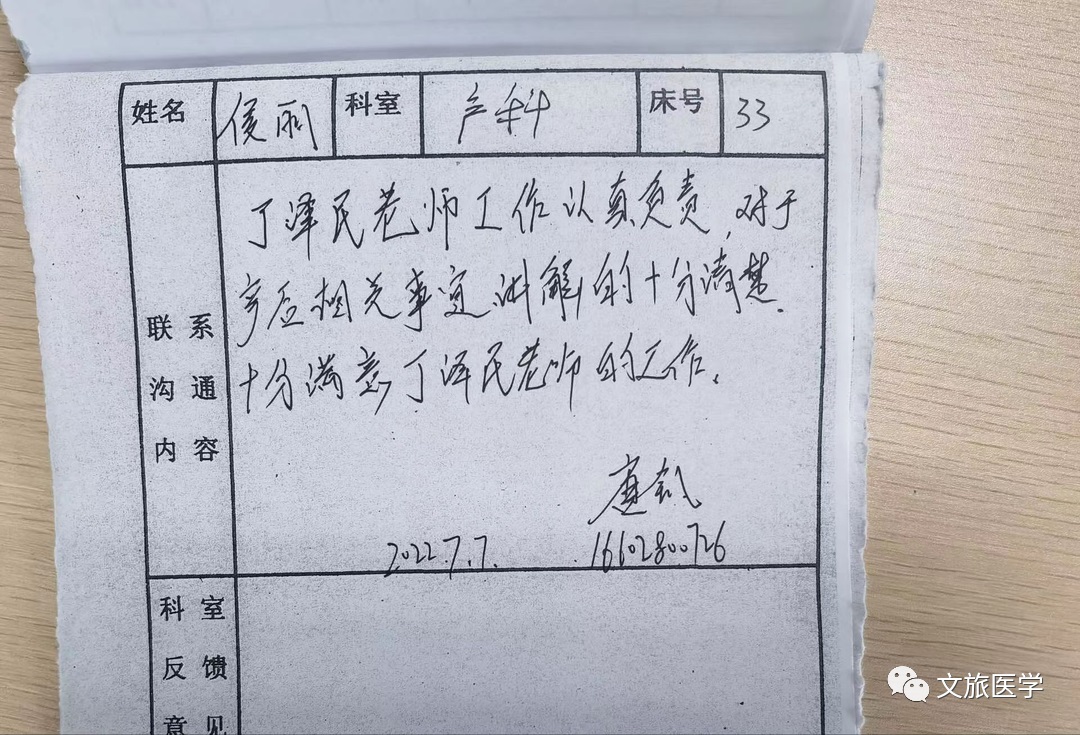 姓名 侯丽 科室 产科 床号 33
联系沟通内容
丁泽民老师工作认真负责，对于
相关事宜讲解的十分清楚.
十分满意丁泽民老师的工作。
2022.7.7. 16602800726
科室
反馈
意见
文旅医学